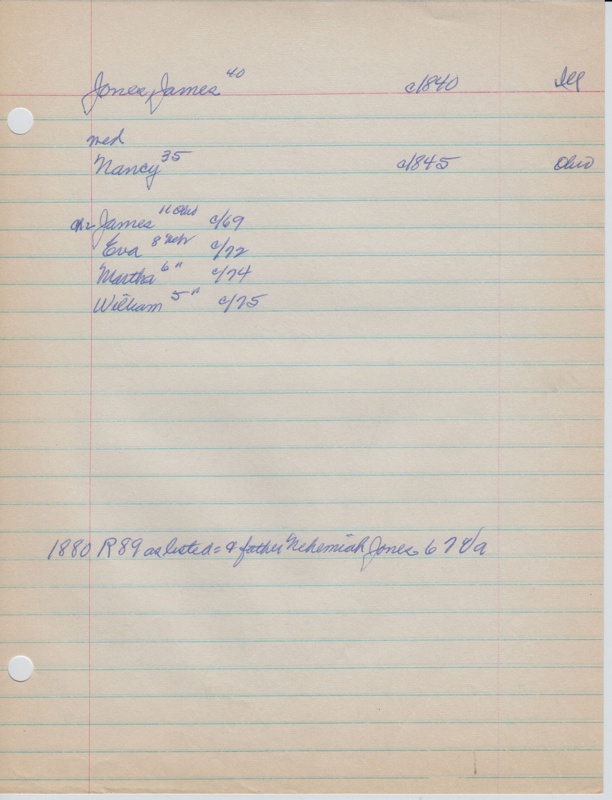 Jones, James 40 c/1840 Ill
med
Nancy 35 c/1845 Ohio
chr James 11 Ohio c/69
Eva 8 Nebr c/72
Martha 6 " c/74
William 5 " c/75
1880 R 89 as listed = & father Nehemiah Jones 67 Va